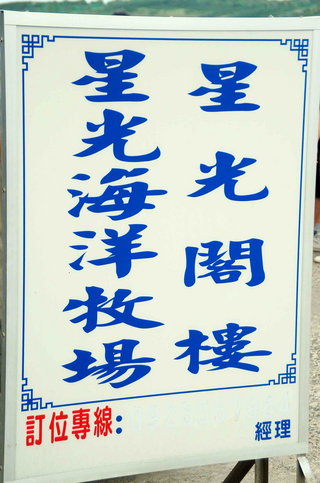 星光閣樓
星光海洋牧場
訂位專線：
經理